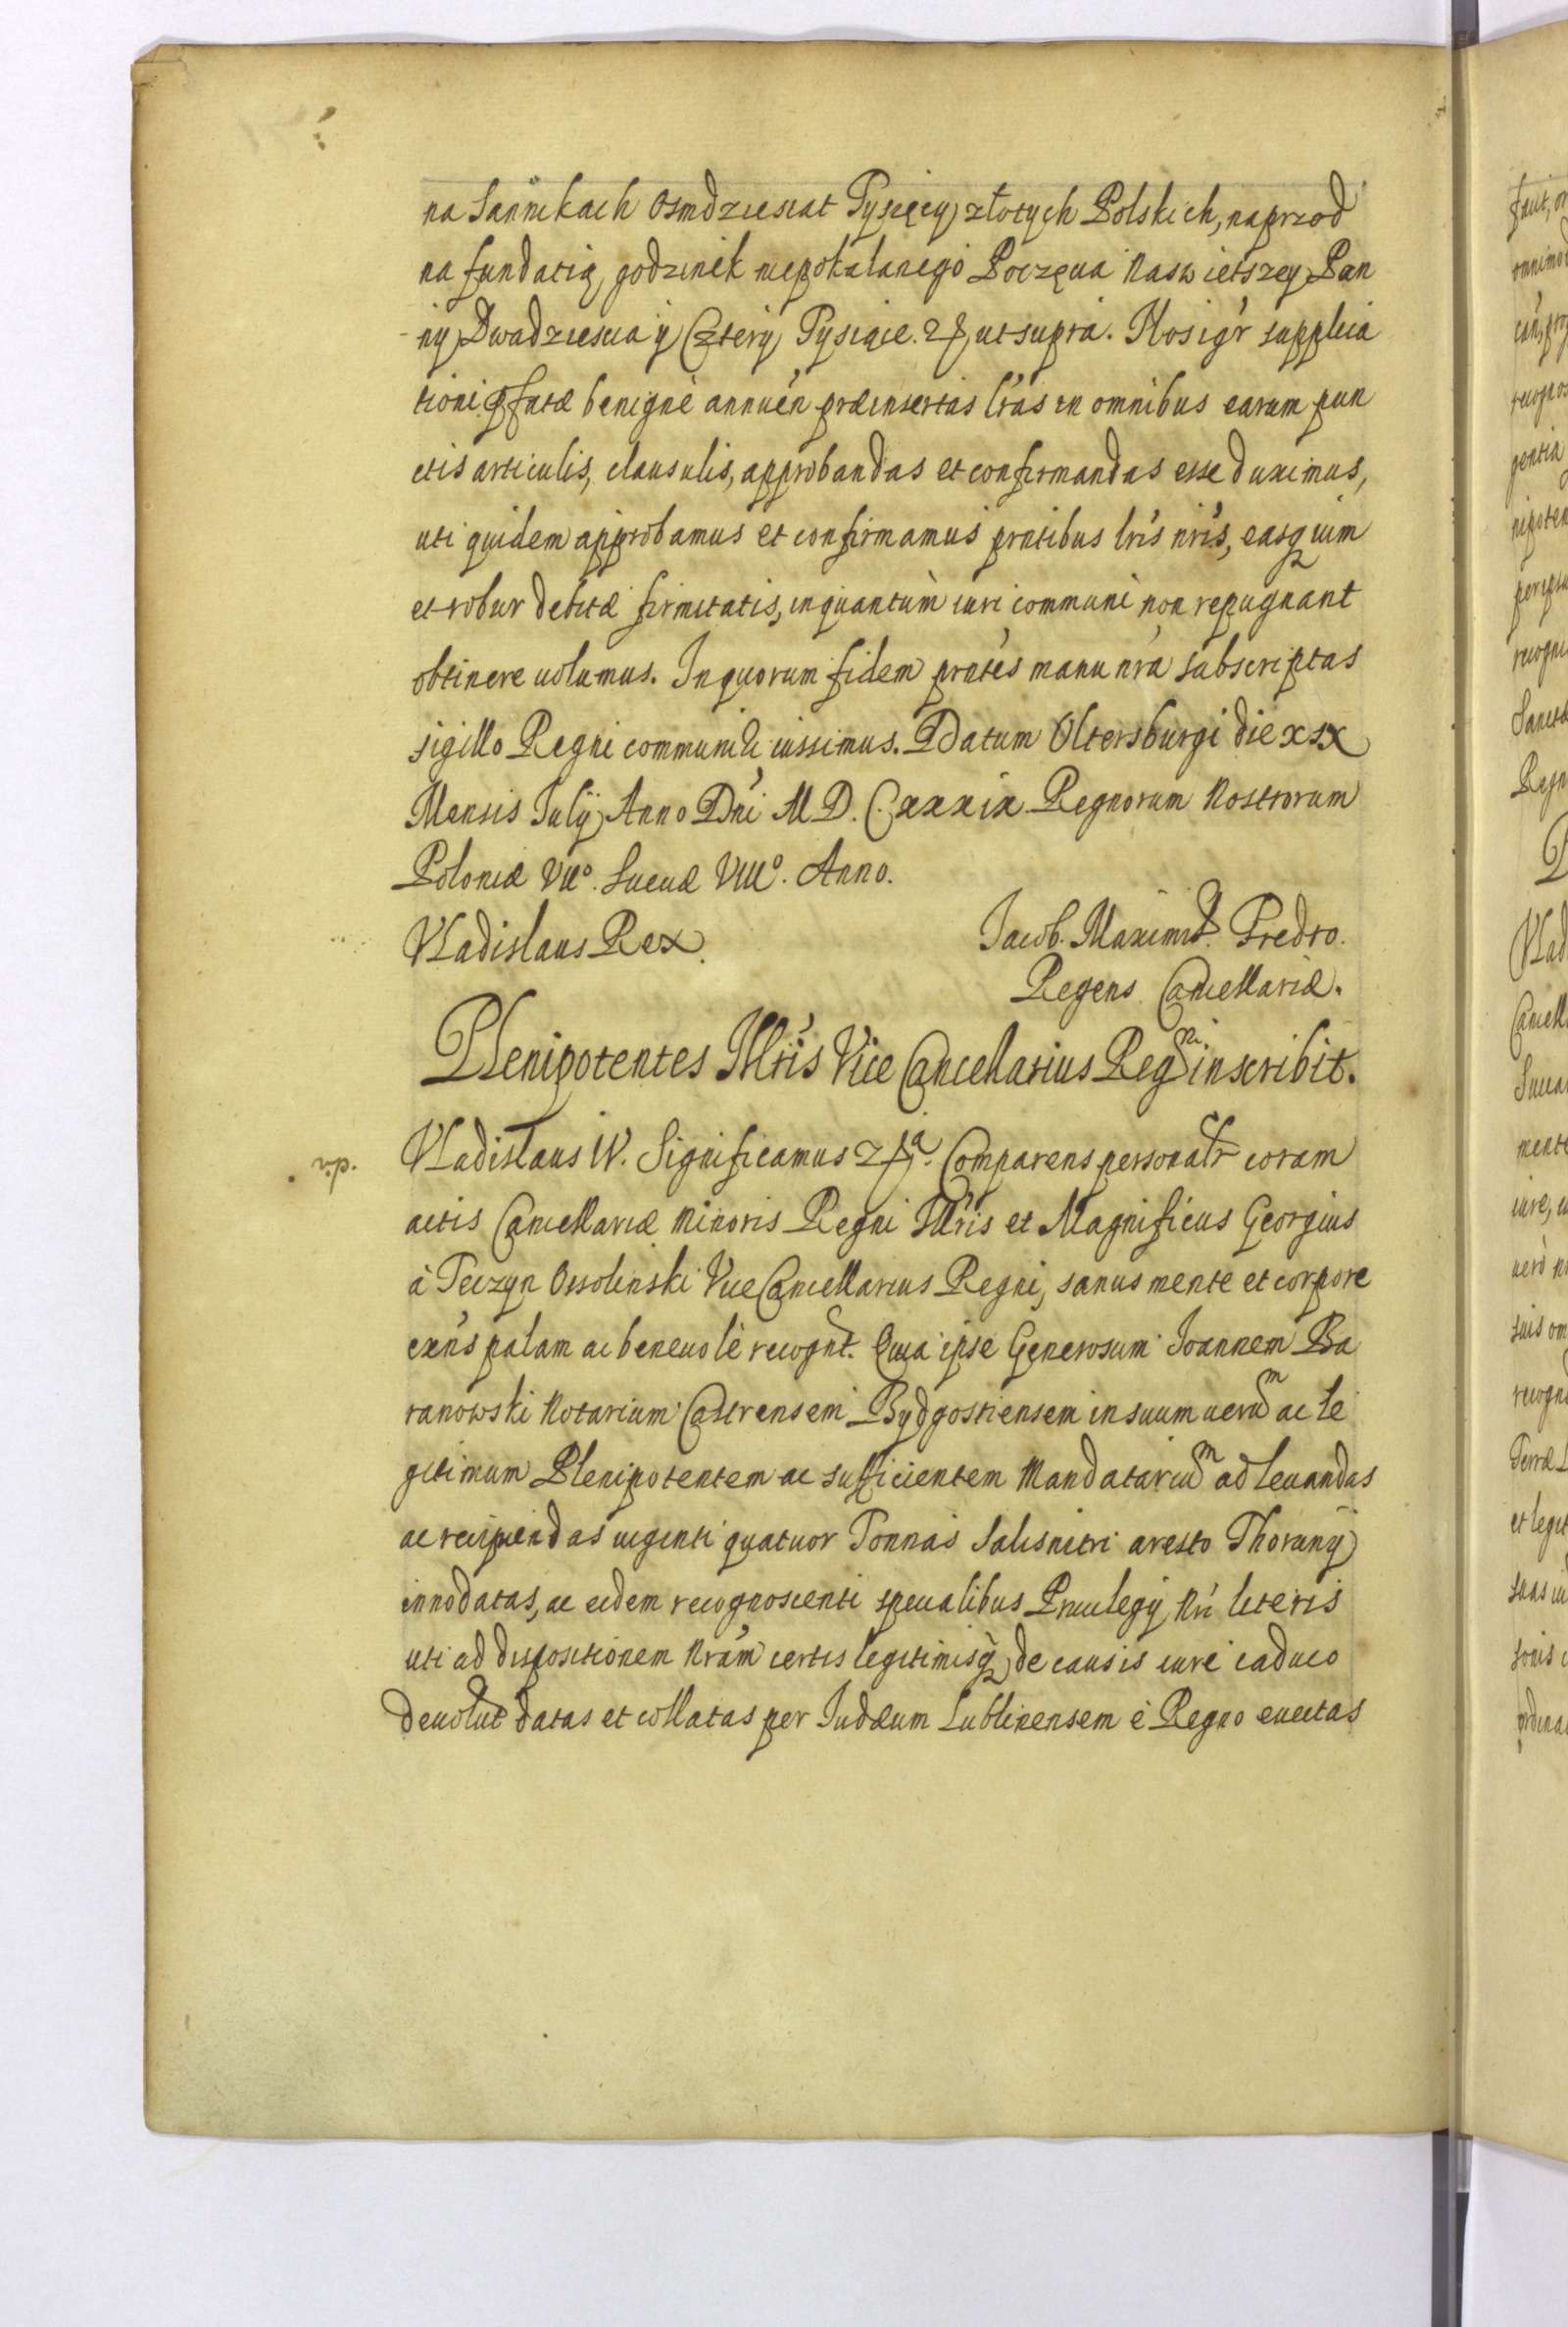 na Sannikach Osmdziesiat Tysięcy złotych Polskich, naprzod
na fundatią godzinek niepokalanego Poczęcia Naswietszey Pan
-ny Dwadziescia y Cztery Tysiące. etc, ut supra. Nos ig'r supplica
tioni pfatæ benignè annuen præinsertas l'ras in omnibus earum pun
ctis articulis, clausulis, approbandas et confirmandas esse duximus,
uti quidem approbamus et confirmamus prntibus lris nris, easq uim
et robur debitæ firmitatis, inquantùm iuri communi non repugnant
obtinere uolumus. In quorum fidem prntes manu nra subscriptas
sigillo Regni communiri iussimus. Datum Oltersburgi die xix
Mensis Julij Anno Dni M D. C xxxix Regnorum Nostrorum
Poloniæ VIIº. Sueciæ VIIIº. Anno.
Vladislaus Rex.
Jacob. Maximil. Fredro.
Regens Cancellariæ.
Plenipotentes Illris Vice Cancellarius Regni inscribit.
dip.
Vladislaus IV. Significamus etc. Comparens personalr coram
actis Cancellariæ Minoris Regni Illris et Magnificus Georgius
à Teczyn Ossolinski Vice Cancellarius Regni, sanus mente et corpore
exns palam ac beneuolè recognt. Quia ipse Generosum Joannem Ba
ranowski Notarium Castrensem Bydgostiensem in suum uerum ac le
gitimum Plenipotentem ac sufficientem Mandatarium ad leuandas
ac recipiendas uiginti quatuor Tonnas Salisnitri aresto Thorunij
innodatas, ac eidem recognoscenti specialibus Priuilegij Nri literis
uti ad dispositionem Nram certis legitimisq, de causis iure caduco
deuolut datas et collatas per Judæum Lublinensem è Regno euectas